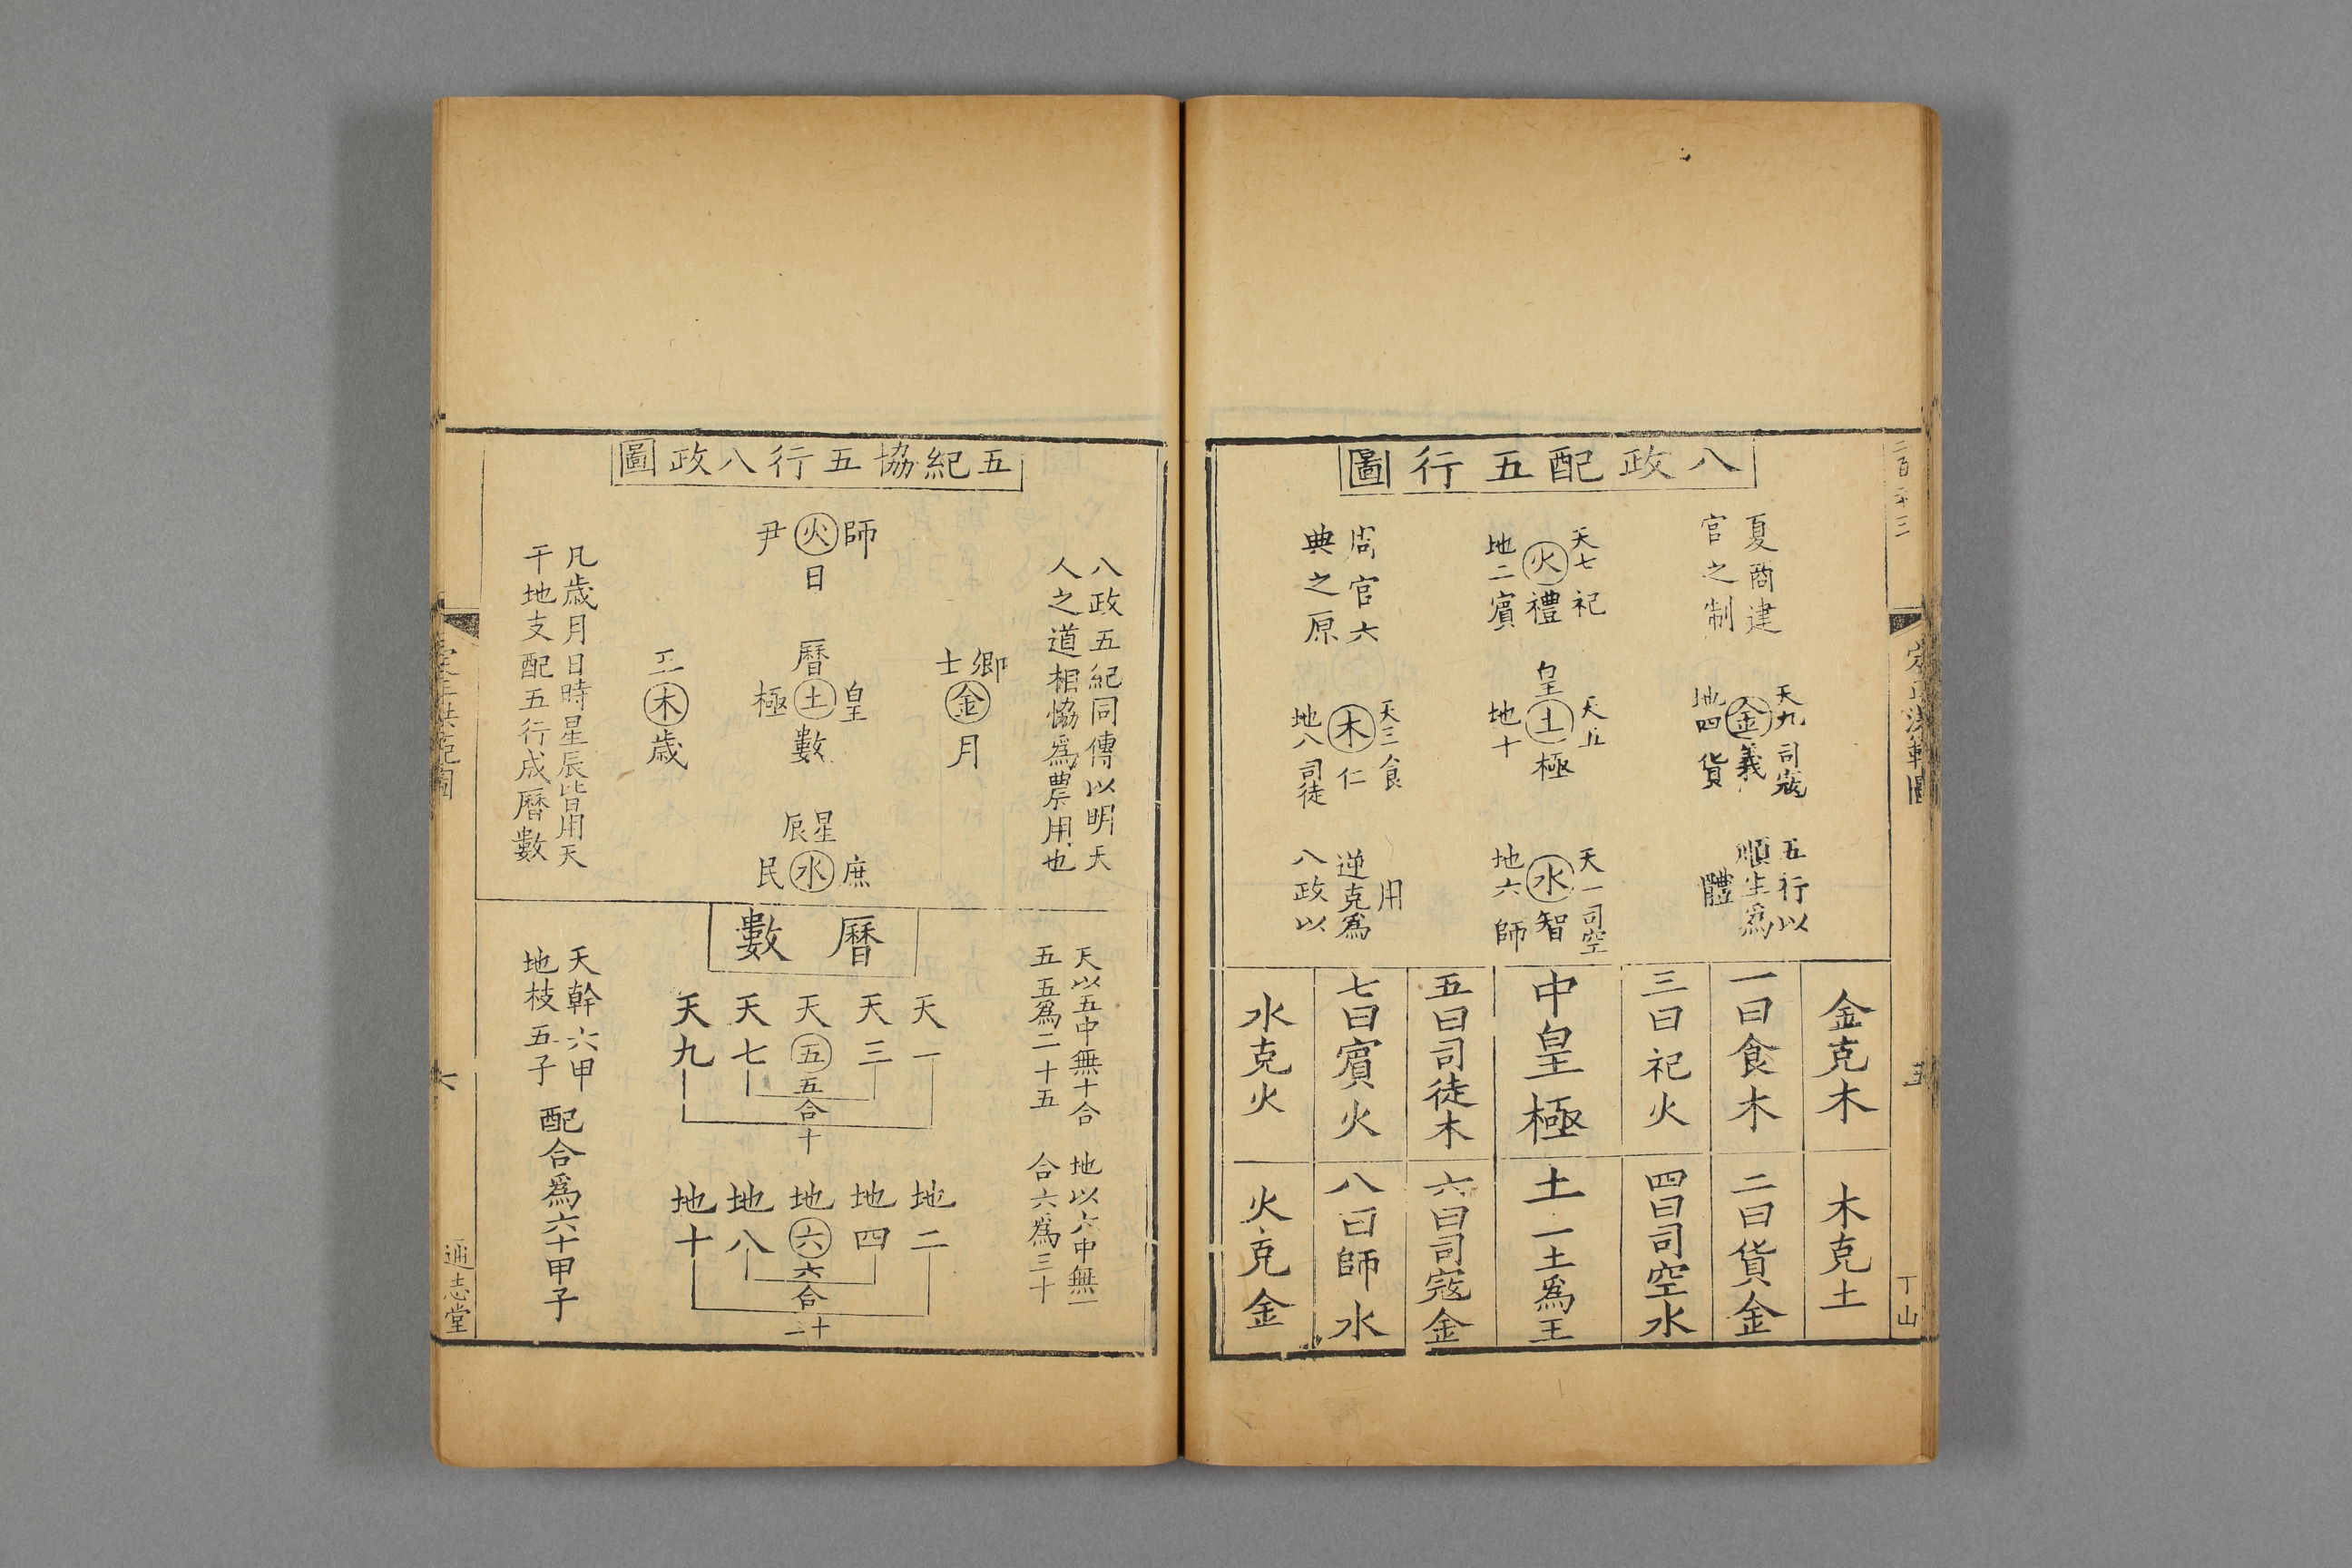 二百二十三
定正洪範圖
五
丁山
八政配五行圖
夏商建
官之制
天七祀
火禮
地二賓
周官六
典之原
天九司寇
金義
地四貨
皇
天五
土極
地十
天三食
木仁
地八司徒
五行以
順生爲
體
天一司空
水智
地六師
用
逆克爲
八政以
金克木
木克土
一曰食木
二曰貨金
三曰祀火
四曰司空水
中皇極
土一土爲王
五曰司徒木
六曰司寇金
七曰賓火
八曰師水
水克火
火克金
五紀協五行八政圖
八政五紀同傳以明天
人之道相恊爲農用也
師
火日
尹
卿
士
金月
曆
皇
土
極
數
工
木歲
星
辰
庶
水
民
凡歲月日時星辰皆用天
干地支配五行成曆數
曆數
天以五中無十合
五五爲二十五
地以六中無一
合六爲三十
天一
天三
天五
天七
天九
五合十
地二
地四
地六
地八
地十
六合
十二
天幹六甲
地枝五子
配合爲六十甲子
定正洪範圖
六
通志堂